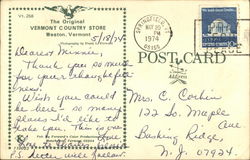 Vt. 258
The Original
VERMONT COUNTRY STORE
Weston, Vermont
5/18/74
Dearest Minnie,
Thank you so much
for your thoughtful-
ness.
Wish you could
be here - so many
places I'd like to
take you. This is one
P.S. letter will follow.
POST CARD
1974
Mrs. C. Corbin
122 So. Maple
Ave
Basking Ridge,
N. J. 07924.